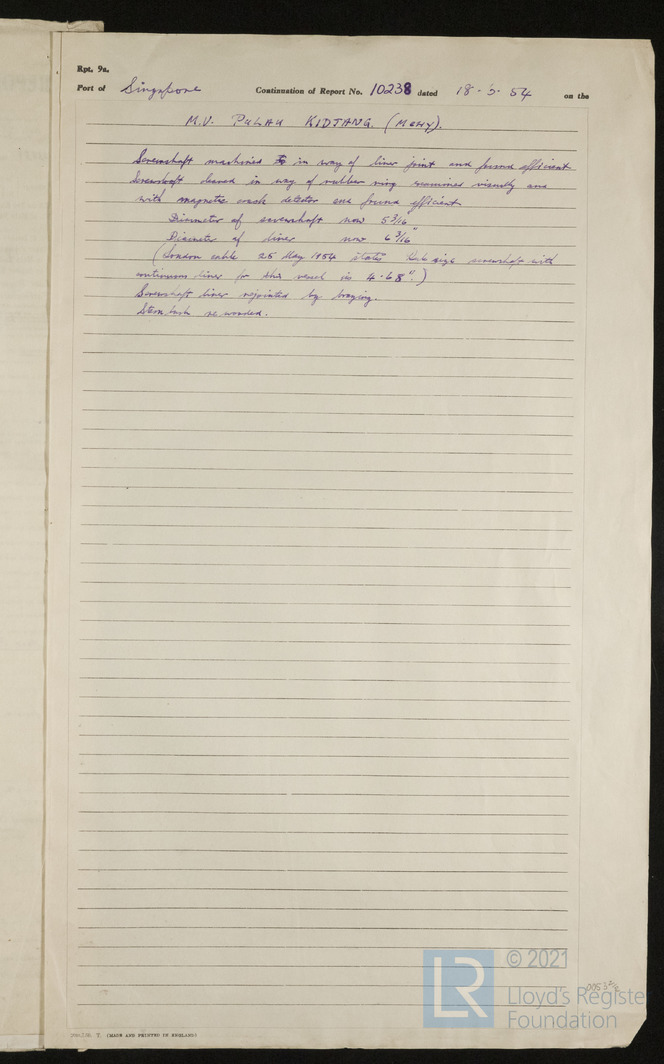 Rpt. 9a.
Port of Singapore Continuation of Report No. 10238 dated 18-5-54 on the
M.V. PULAU KIDJANG.
Screwshaft machined in way of liner joint and found efficient
Screwshaft cleaned in way of rubber ring examined visually and
with magnetic crack detector and found efficient
Diameter of screwshaft now 5 3/16"
Diameter of liner now 6 3/16"
(London cable 25 May 1954 states Rule size screwshaft with
continuous liner for this vessel is 4.68".)
Screwshaft liner rejointed by brazing.
Stern bush re wooded.
T. (MADE AND PRINTED IN ENGLAND)
© 2021
Lloyd's Register
Foundation
LR